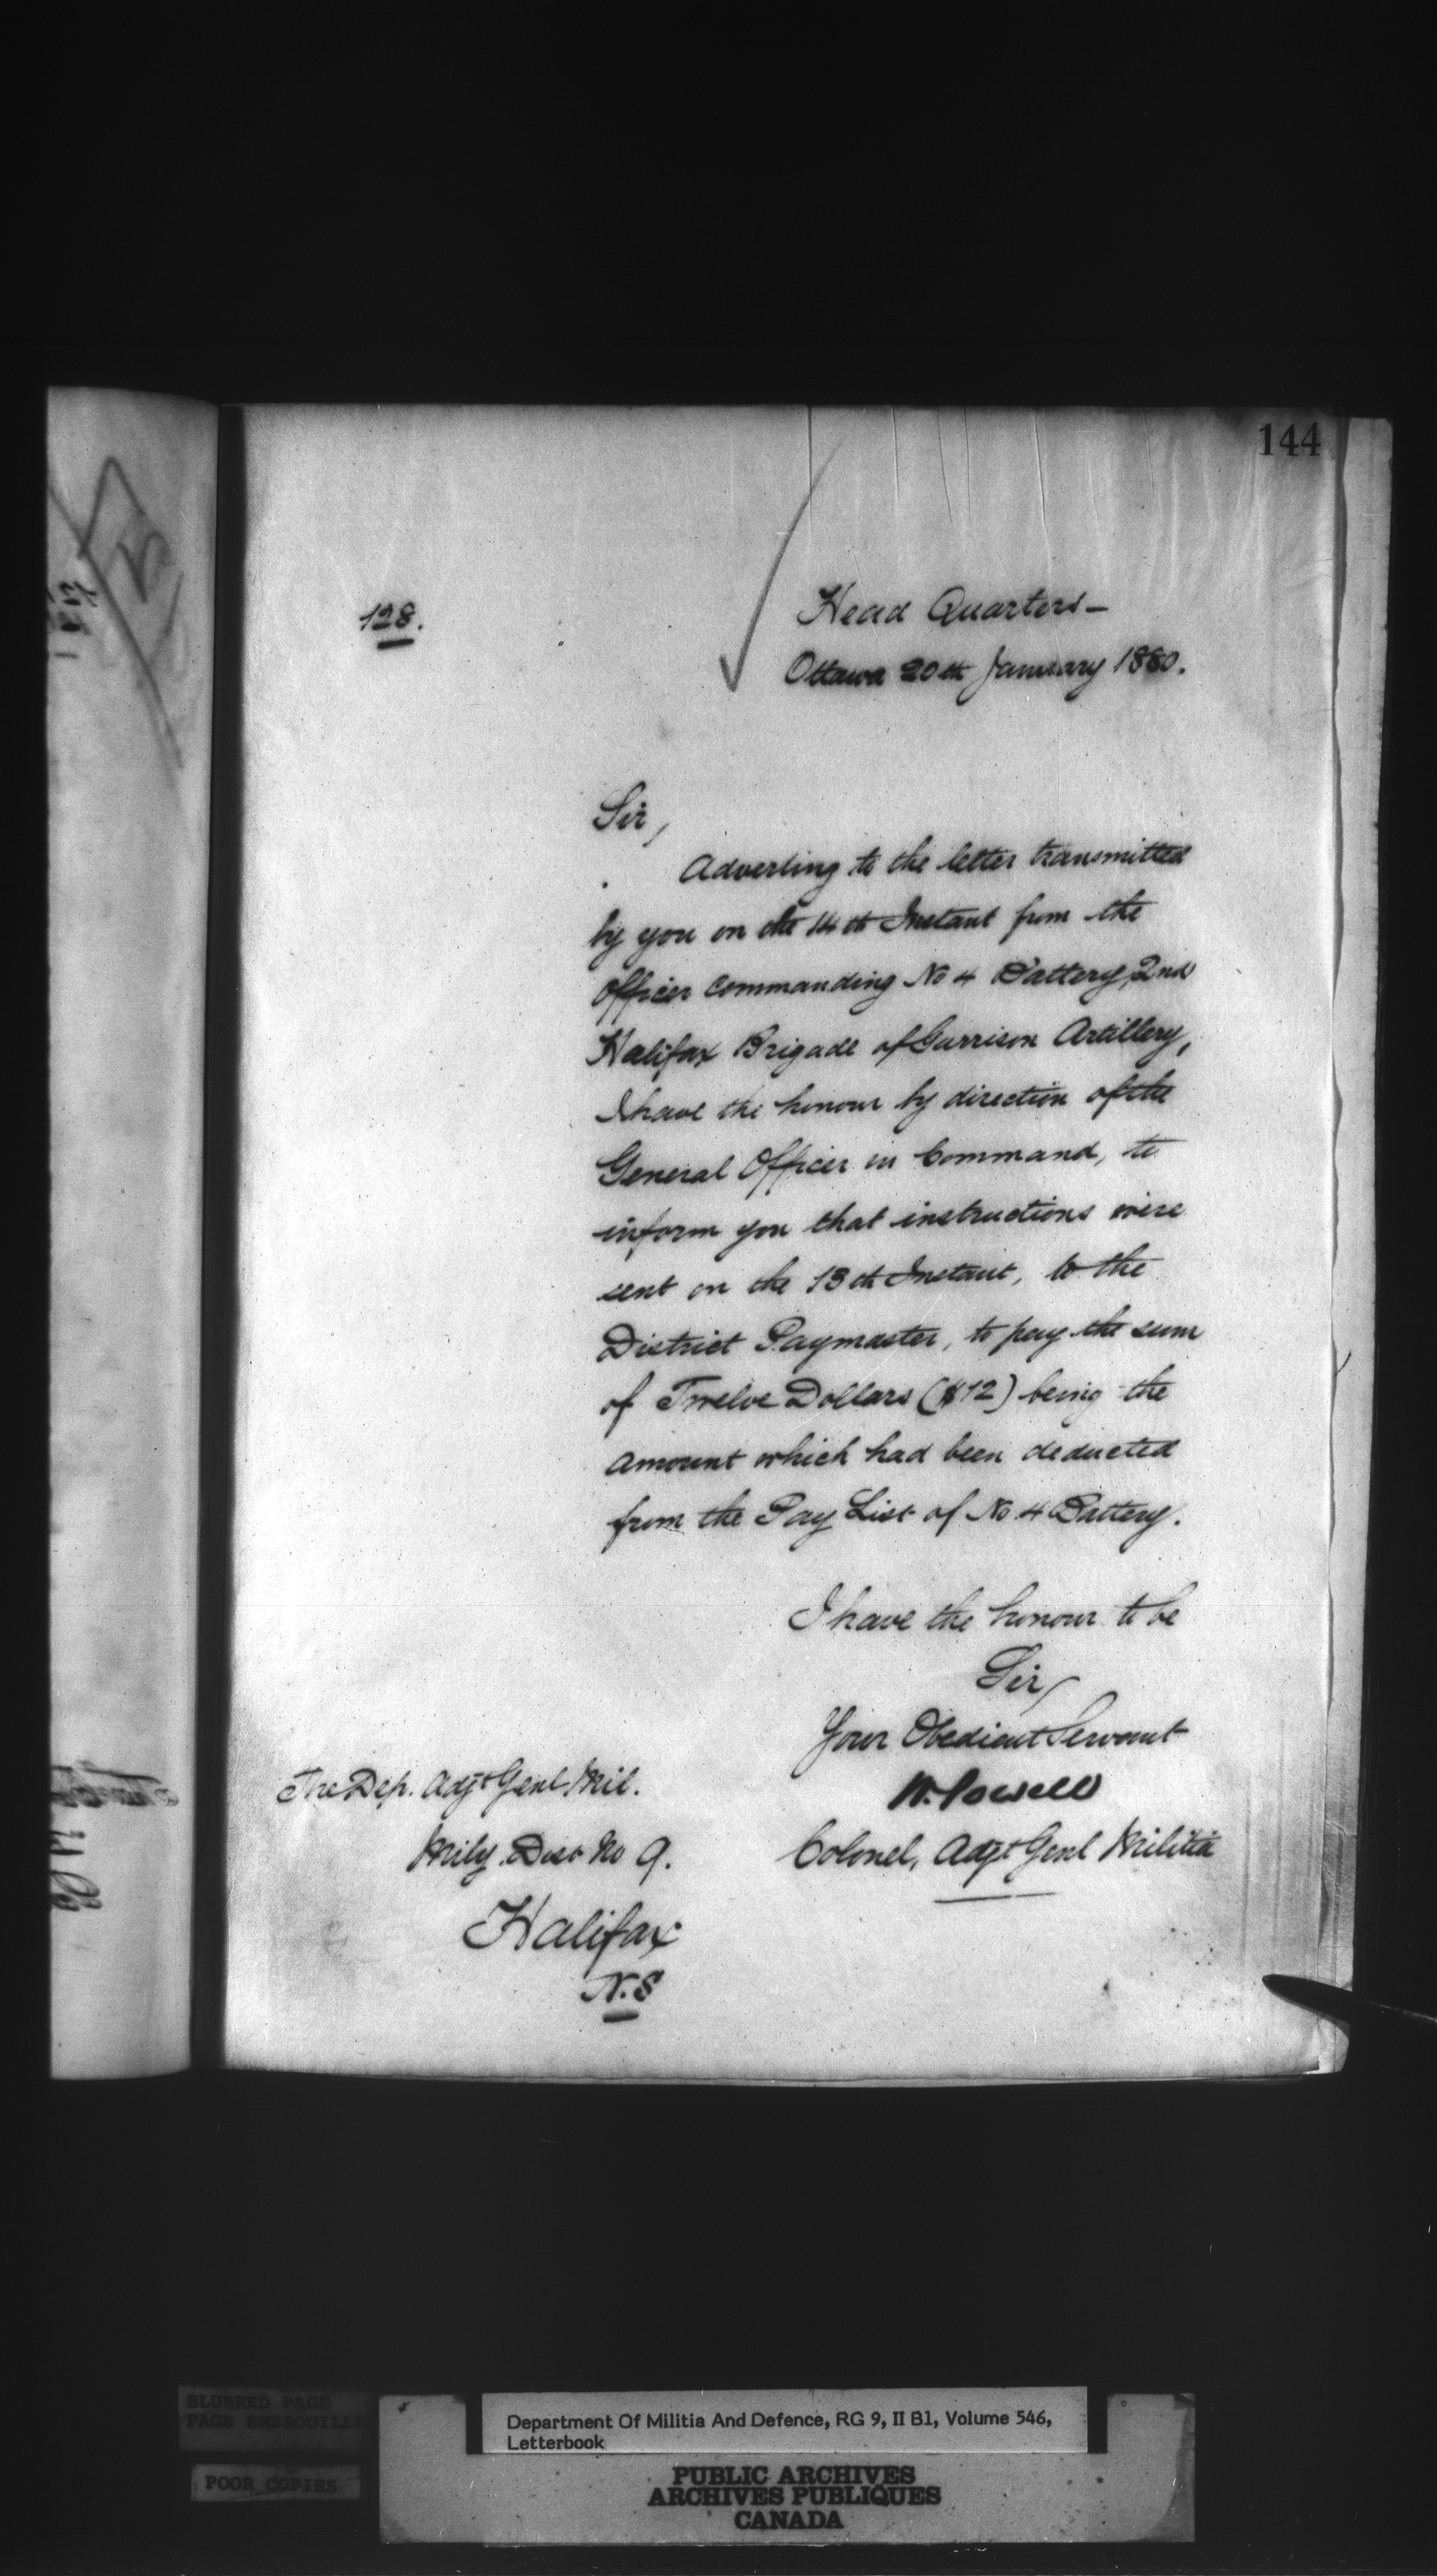 144
128.
Head Quarters—
Ottawa 20th January 1880.
Sir,
Adverting to the letter transmitted
by you on the 14th Instant from the
Officer Commanding No 4 Battery, 2nd
Halifax Brigade of Garrison Artillery,
I have the honour by direction of the
General Officer in Command, to
inform you that instructions were
sent on the 13th Instant, to the
District Paymaster, to pay the sum
of Twelve Dollars ($12) being the
amount which had been deducted
from the Pay List of No 4 Battery.
I have the honour to be
Sir,
Your Obedient Servant
W. Powell
Colonel, Adjt Genl Militia
The Dep. Adjt Genl Mil.
Mily. Dist No 9.
Halifax
N.S
BLURRED PAGE
PAGE EMBROUILLE
POOR COPIES
Department Of Militia And Defence, RG 9, II B1, Volume 546,
Letterbook
PUBLIC ARCHIVES
ARCHIVES PUBLIQUES
CANADA